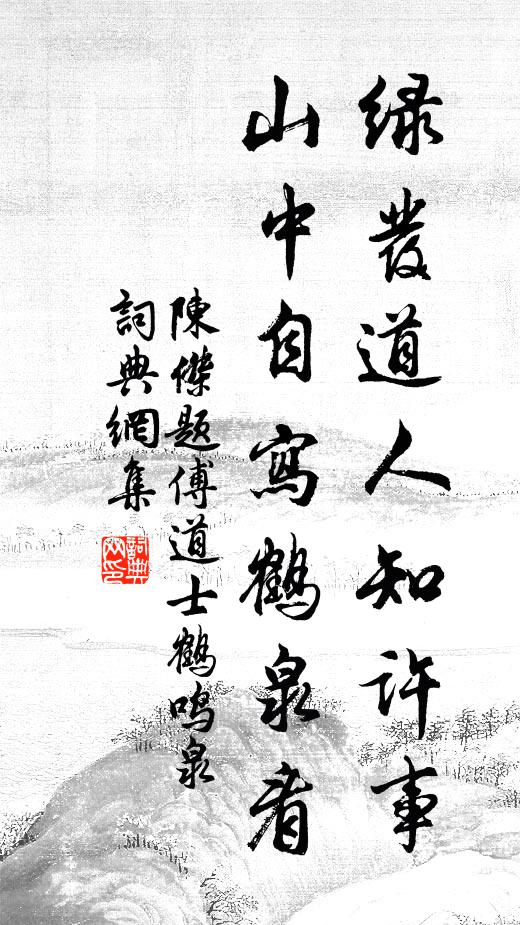 緑发道人知许事
山中自寫鶴泉看
陳傑题傅道士鶴鸣泉
詞典網集
詞典网印